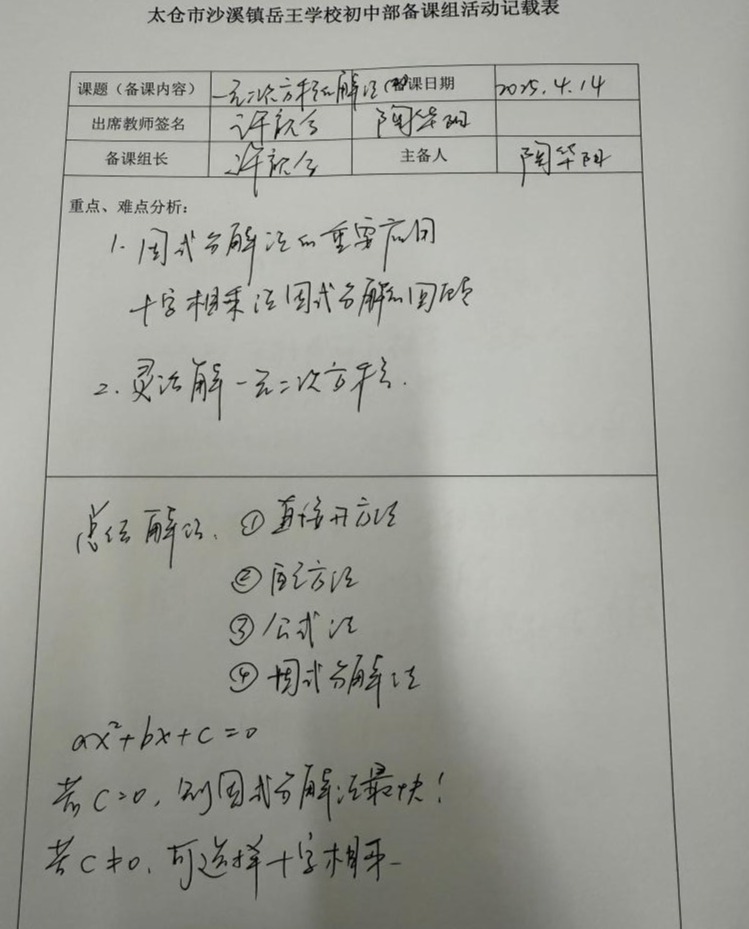 太仓市沙溪镇岳王学校初中部备课组活动记载表
课题（备课内容） 一元二次方程的解法 备课日期 2025.4.14
出席教师签名 许 陶华
备课组长 许 主备人 陶华
重点、难点分析：
1. 因式分解法的重要应用
十字相乘法因式分解的回顾
2. 灵活解一元二次方程.
总结解法. ① 直接开方法
② 配方法
③ 公式法
④ 因式分解法
ax²+bx+c=0
若C=0, 则因式分解法最快!
若C≠0, 可选择十字相乘